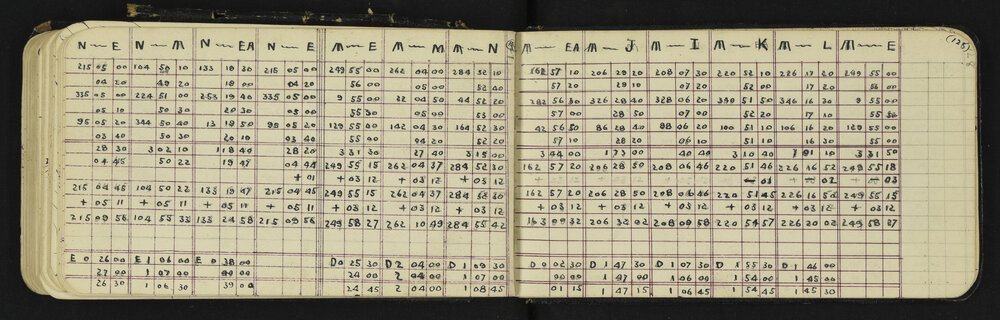 (125)
N — E N — M N — EA N — E M — E M — M M — N M — EA M — J M — I M — K M — L M — E
215 05 00 104 50 10 133 18 30 215 05 00 249 55 00 262 04 00 284 52 10 162 57 10 206 29 20 208 07 30 220 52 10 226 17 20 249 55 00
04 20 49 20 18 00 04 20 56 00 05 00 52 40 57 20 29 10 07 20 52 00 17 20 56 00
335 05 00 224 51 00 253 19 40 335 05 00 9 55 00 22 04 50 44 52 20 282 56 30 326 28 40 328 06 20 340 51 50 346 16 30 9 55 00
05 10 50 30 20 30 05 00 55 30 05 00 53 00 57 00 28 50 07 00 52 20 17 10 55 30
95 05 20 344 50 40 13 18 50 95 05 20 129 55 00 142 04 30 164 52 30 42 56 50 86 28 40 88 06 20 100 51 10 106 16 20 129 55 00
03 40 50 30 20 10 03 40 55 00 04 20 52 20 57 10 28 20 06 10 51 10 16 30 55 00
28 30 302 10 118 40 28 20 331 30 27 40 315 00 344 00 173 00 40 40 310 40 101 10 331 50
04 45 50 22 19 47 04 44 249 55 15 262 04 37 284 52 30 162 57 20 206 28 50 208 06 46 220 51 46 226 16 52 249 55 18
+ 01 + 03 12 + 03 12 + 03 12 03 02 03
215 04 45 104 50 22 133 19 47 215 04 45 249 55 15 262 04 37 284 52 30 162 57 20 206 28 50 208 06 46 220 51 45 226 16 50 249 55 15
+ 05 11 + 05 11 + 05 11 + 05 11 + 03 12 + 03 12 + 03 12 + 03 12 + 03 12 + 03 12 + 03 12 + 03 12 + 03 12
215 09 56 104 55 33 133 24 58 215 09 56 249 58 27 262 10 49 284 55 42 163 00 32 206 32 02 208 09 58 220 54 57 226 20 02 249 58 27
E 0 26 00 E 1 06 00 E 0 38 00 D 0 25 30 D 2 04 00 D 1 09 30 D 0 02 30 D 1 47 30 D 1 07 30 D 1 55 30 D 1 46 00
27 00 1 07 00 24 00 2 04 00 1 07 00 00 00 1 47 00 1 06 00 1 54 00 1 45 00
26 30 1 06 30 39 00 24 45 2 04 00 1 08 45 01 15 1 47 15 1 06 45 1 54 45 1 45 30